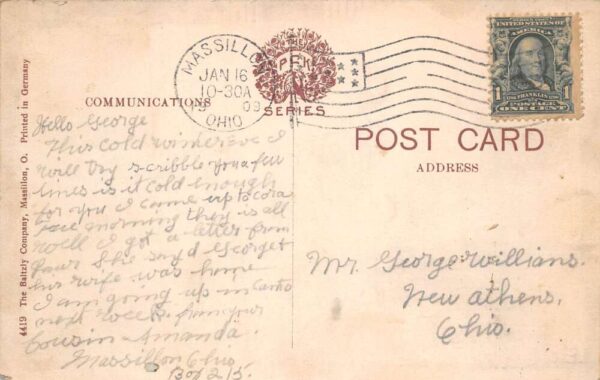 MASSILLON
JAN 16
10-30A
09
OHIO
THE
PEN
SERIES
SERIES 1902
UNITED STATES OF
AMERICA
FRANKLIN
POSTAGE
ONE CENT
1 1
COMMUNICATIONS
POST CARD
ADDRESS
4419 The Baltzly Company, Massillon, O. Printed in Germany
Hello George
This cold winter eve I
will try scribble you a few
lines is it cold enough
for you I came up to cora
morning they is all
well I got a letter from
She said George &
his wife was home
I am going up in Canto
next week. from your
Cousin Amanda.
Massillon Ohio
Box 215.
Mr. George Williams.
New athens,
Ohio.